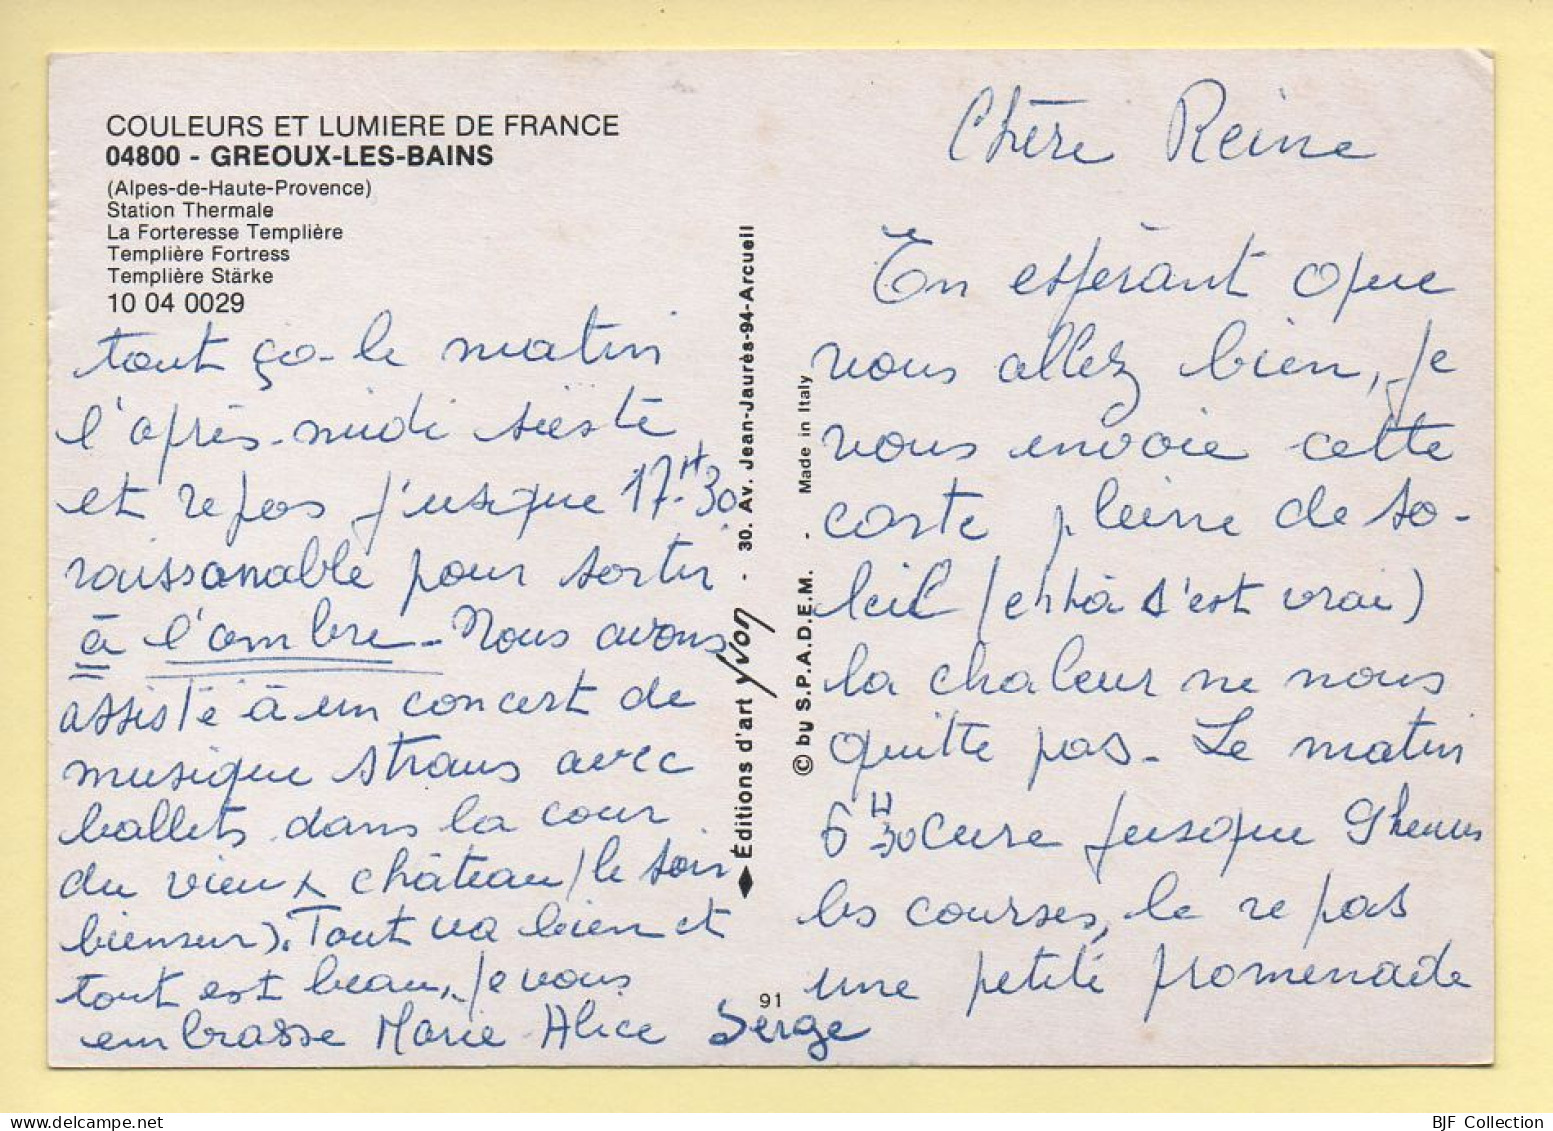 COULEURS ET LUMIERE DE FRANCE
04800 - GREOUX-LES-BAINS
(Alpes-de-Haute-Provence)
Station Thermale
La Forteresse Templière
Templière Fortress
Templière Stärke
10 04 0029
Chère Reine
En espèrant que
vous allez bien, je
vous envoie cette
carte pleine de so-
leil (et là s'est vrai)
la chaleur ne nous
quitte pas. Le matin
6H30 cure jusque 9heures
les courses, le repas
une petite promenade
tout ça - le matin
l'après-midi sieste
et repos jusque 17H30
raissonable pour sortir
à l'ombre. Nous avons
assisté à un concert de
musique Straus avec
ballets dans la cour
du vieux château (le soir
biensur). Tout va bien et
tout est beau, je vous
embrasse Marie-Alice Serge
Éditions d'art yvon - 30. Av. Jean-Jaurès-94-Arcueil
© by S.P.A.D.E.M. - Made in Italy
91
BJF Collection